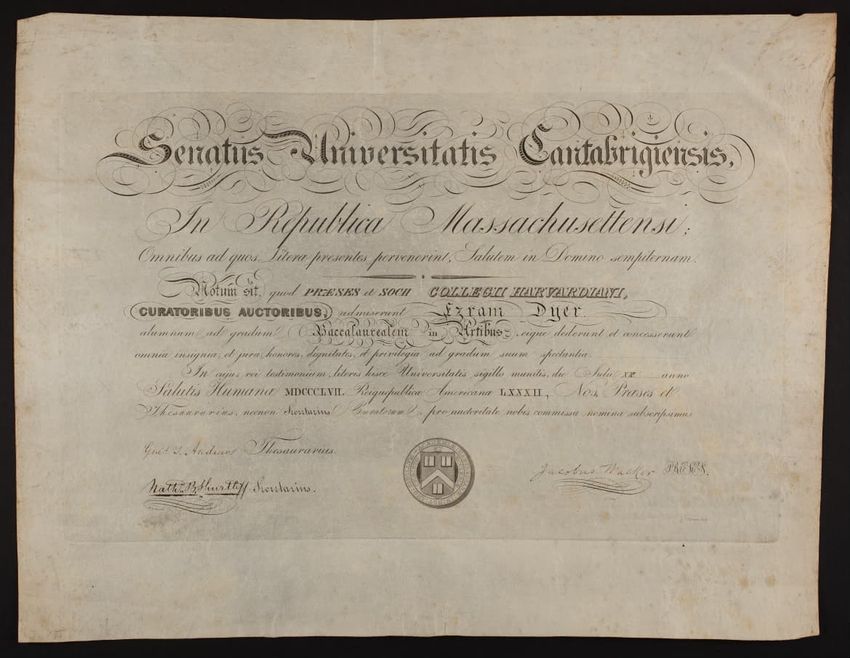 Senatus Universitatis Cantabrigiensis,
In Republica Massachusettensi:
Omnibus ad quos Litera presentes pervenerint, Salutem in Domino sempiternam.
Notum sit, quod PRÆSES et SOCII COLLEGII HARVARDIANI,
CURATORIBUS AUCTORIBUS, admiserunt Ezram Dyer
alumnum ad gradum Baccalaurealem in Artibus, eique dederunt et concesserunt
omnia insignia, et jura, honores, dignitates, et privilegia ad gradum suum spectantia.
In cujus rei testimonium, literis hisce Universitatis sigillo munitis, die Julii anno
Salutis Humanæ MDCCCLVII, Reique publicæ Americanæ LXXXII, Nos, Præses et
Thesaurarius, necnon Secretarius Curatorum, pro auctoritate nobis commissa nomina subscripsimus.
Andrews Thesaurarius.
Jacobus Walker PRÆSES.
Nath. B. Shurtleff Secretarius.